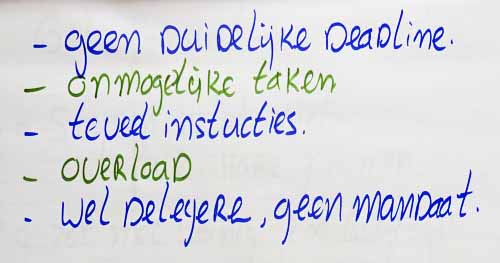 - geen DuiDelijke DeaDline.
- onmogelijke taken
- teveel instucties.
- OVERLOAD
- wel Delegere, geen manDaat.